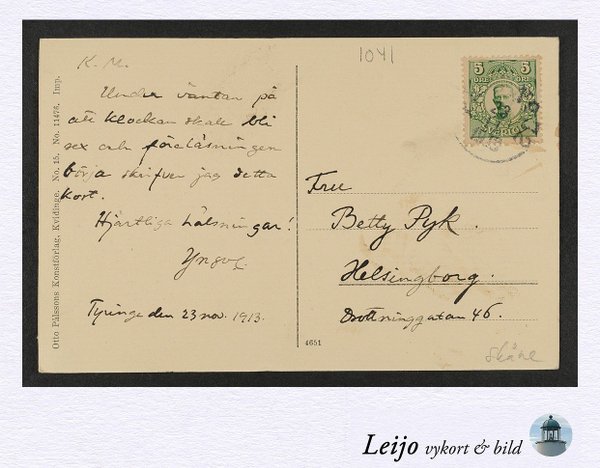 K. M.
Under väntan på
att klockan skall bli
sex och föreläsningen
börja skrifver jag detta
kort.
Hjärtliga hälsningar!
Yngve.
Tyringe den 23 nov. 1913.
Otto Pålssons Konstförlag, Kvidinge. No. 15. No. 11476. Imp.
1041
5 5
ÖRE ÖRE
SVERIGE
Fru
Betty Pyk.
Helsingborg.
Drottninggatan 46.
4651
Skåne
Leijo vykort & bild